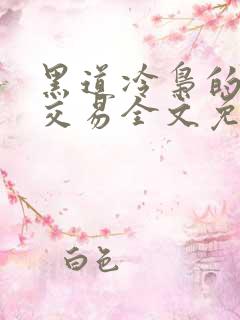 黑道冷枭的
交易全文免
白色